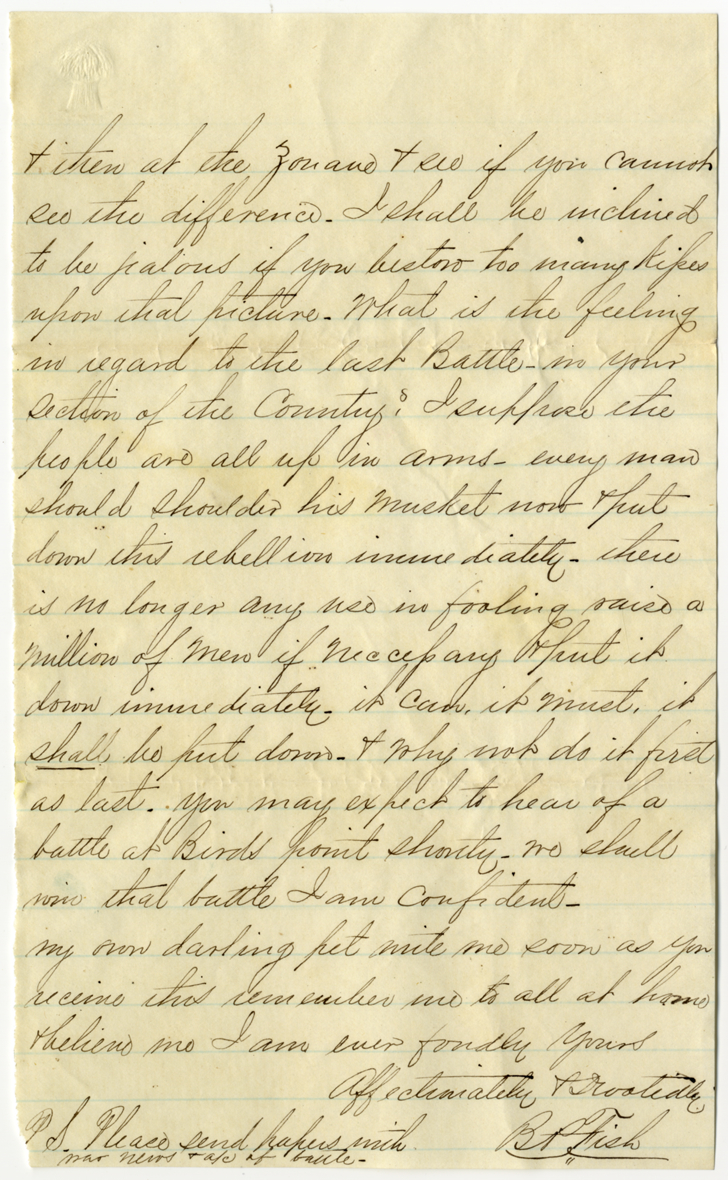 & then at the Zouave & see if you cannot
see the difference. I shall be inclined
to be jealous if you bestow too many Kisses
upon that picture. What is the feeling
in regard to the last Battle - in your
section of the Country? I suppose the
people are all up in arms - every man
should shoulder his musket now & put
down this rebellion immediately - there
is no longer any use in fooling raise a
million of Men if neccessary & put it
down immediately - it can, it must, it
shall be put down - & why not do it first
as last. you may expect to hear of a
battle at Birds point shortly - we shall
win that battle I am confident -
my own darling pet write me soon as you
receive this remember me to all at home
& believe me I am ever fondly Yours
Affectionately & Devotedly
B. F. Fish
P.S. Please send papers with
war news & a/c of battle -